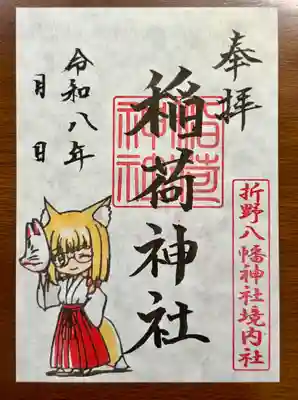 奉拝
稲荷神社
稲荷神社
折野八幡神社境内社
令和八年
月　日